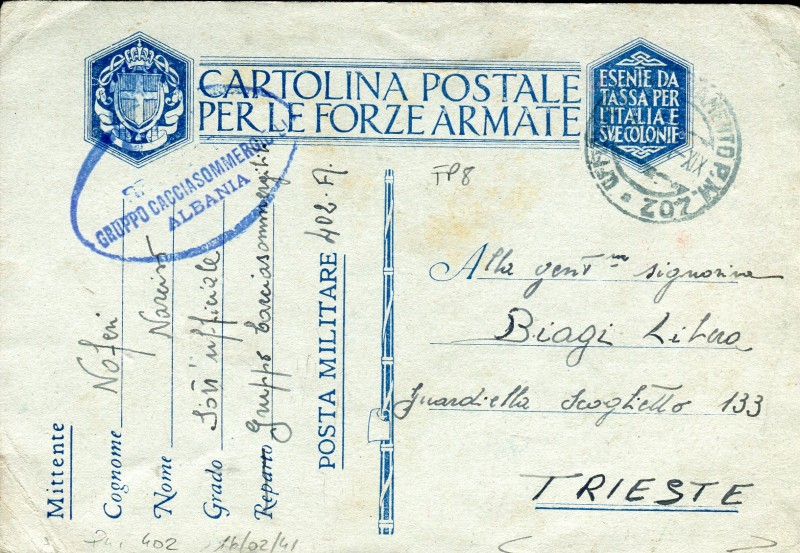 CARTOLINA POSTALE
PER LE FORZE ARMATE
ESENTE DA
TASSA PER
L'ITALIA E
SVE COLONIE
GRUPPO CACCIASOMMERGIBILI
ALBANIA
P.M. 207
XIX
FP8
Mittente
Cognome Noferi
Nome Narciso
Grado Sott'ufficiale
Reparto Gruppo Cacciasommergibili
POSTA MILITARE 402. A.
Alla gent.ma signorina
Biagi Libera
Guardiella Scoglietto 133
TRIESTE
P.M. 402 16/02/41